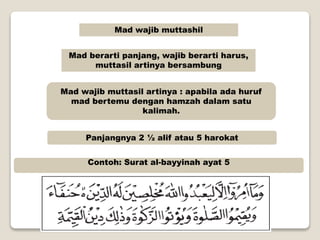 Mad wajib muttashil
Mad berarti panjang, wajib berarti harus,
muttasil artinya bersambung
Mad wajib muttasil artinya : apabila ada huruf
mad bertemu dengan hamzah dalam satu
kalimah.
Panjangnya 2 ½ alif atau 5 harokat
Contoh: Surat al-bayyinah ayat 5
وَمَآ أُمِرُوٓا۟ إِلَّا لِيَعْبُدُوا۟ ٱللَّهَ مُخْلِصِينَ لَهُ ٱلدِّينَ حُنَفَآءَ
وَيُقِيمُوا۟ ٱلصَّلَوٰةَ وَيُؤْتُوا۟ ٱلزَّكَوٰةَ وَذَٰلِكَ دِينُ ٱلْقَيِّمَةِ